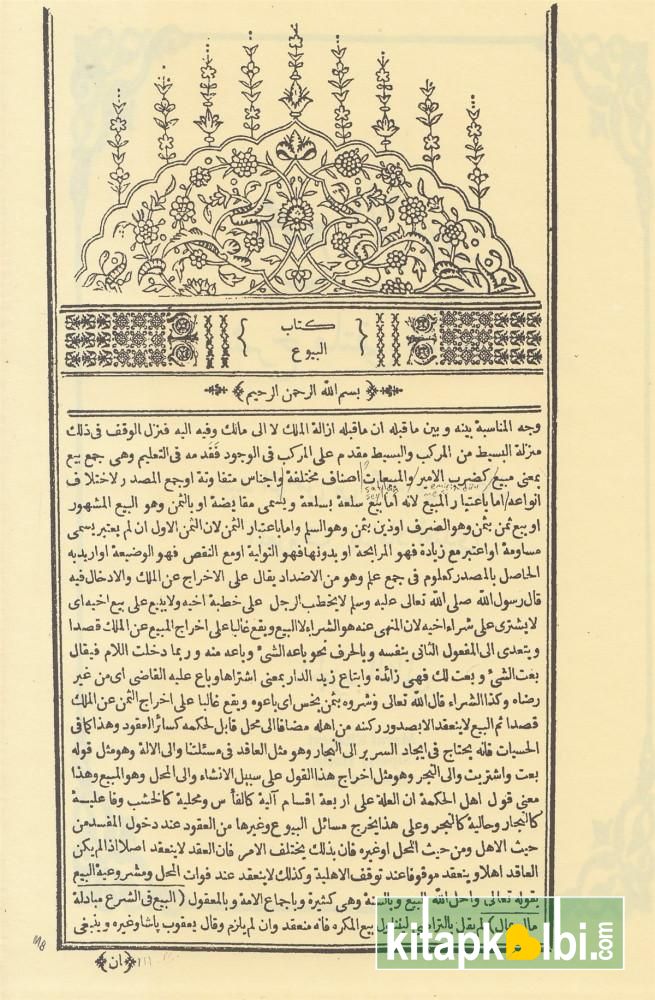 كتاب
البيوع
بسم الله الرحمن الرحيم
وجه المناسبة بينه وبين ماقبله ان ماقبله ازالة الملك لا الى مالك وفيه اليه فنزل الوقف فى ذلك
منزلة البسيط من المركب والبسيط مقدم على المركب فى الوجود فقدمه فى التعليم وهى جمع بيع
بمعنى مبيع كضرب الامير والمبيعات اصناف مختلفة واجناس متفاوتة اوجمع المصدر لاختلاف
انواعه اما باعتبار المبيع لانه اما بيع سلعة بسلعة ويسمى مقايضة او بالثمن وهو البيع المشهور
او بيع ثمن بثمن وهو الصرف اودين بثمن وهو السلم واما باعتبار الثمن لان الثمن الاول ان لم يعتبر يسمى
مساومة اواعتبر مع زيادة فهو المرابحة او بدونها فهو التولية اومع النقص فهو الوضيعة اواريد به
الحاصل بالمصدر كعلوم فى جمع علم وهو من الاضداد يقال على الاخراج عن الملك والادخال فيه
قال رسول الله صلى الله تعالى عليه وسلم لا يخطب الرجل على خطبة اخيه ولا يبيع على بيع اخيه اى
لا يشترى على شراء اخيه لان المنهى عنه هو الشراء لا البيع ويقع غالبا على اخراج المبيع عن الملك قصدا
ويتعدى الى المفعول الثانى بنفسه وبالحرف نحو باعه الشئ وباعه منه وربما دخلت اللام فيقال
بعت الشئ وبعت لك فهى زائدة وابتاع زيد الدار بمعنى اشتراها وباع عليه القاضى اى من غير
رضاه وكذا الشراء قال الله تعالى وشروه بثمن بخس اى باعوه ويقع غالبا على اخراج الثمن عن الملك
قصدا ثم البيع لا ينعقد الا بصدور ركنه من اهله مضافا الى محل قابل لحكمه كسائر العقود وهذا كما فى
الحسيات فانه يحتاج فى ايجاد السرير الى النجار وهو مثل العاقد فى مسئلتنا والى الالة وهو مثل قوله
بعت واشتريت والى النجر وهو مثل اخراج هذا القول على سبيل الانشاء والى المحل وهو المبيع وهذا
معنى قول اهل الحكمة ان العلة على اربعة اقسام آلية كالفأس ومحلية كالخشب وفاعلية
كالنجار وحالية كالنجر وعلى هذا يخرج مسائل البيوع وغيرها من العقود عند دخول المفسد من
حيث الاهل ومن حيث المحل اوغيره فان بذلك يختلف الامر فان العقد لا ينعقد اصلا اذا لم يكن
العاقد اهلا وينعقد موقوفا عند توقف الاهلية وكذلك لا ينعقد عند فوات المحل ومشروعية البيع
بقوله تعالى واحل الله البيع وبالسنة وهى كثيرة وباجماع الامة وبالمعقول (البيع فى الشرع مبادلة
مال بمال) لم يقل بالتراضى ليتناول بيع المكره فانه منعقد وان لم يلزم وقال يعقوب باشا وغيره وينبغى
ان
kitapkalbi.com